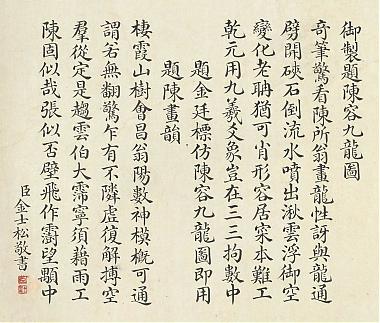 御製題陳容九龍圖
奇筆驚看陳所翁畫龍性訝與龍通
劈開硤石倒流水噴出湫雲浮御空
變化老聃猶可肖形容居寀本難工
乾元用九羲爻象豈在三三拘數中
題金廷標仿陳容九龍圖即用
題陳畫韻
棲霞山樹會昌翁陽數神模概可通
謂若無翻驚乍有不隣虛復解摶空
羣從定是趨雲伯大霈寧須藉雨工
陳固似哉張似否壁飛作望顒中
臣金士松敬書